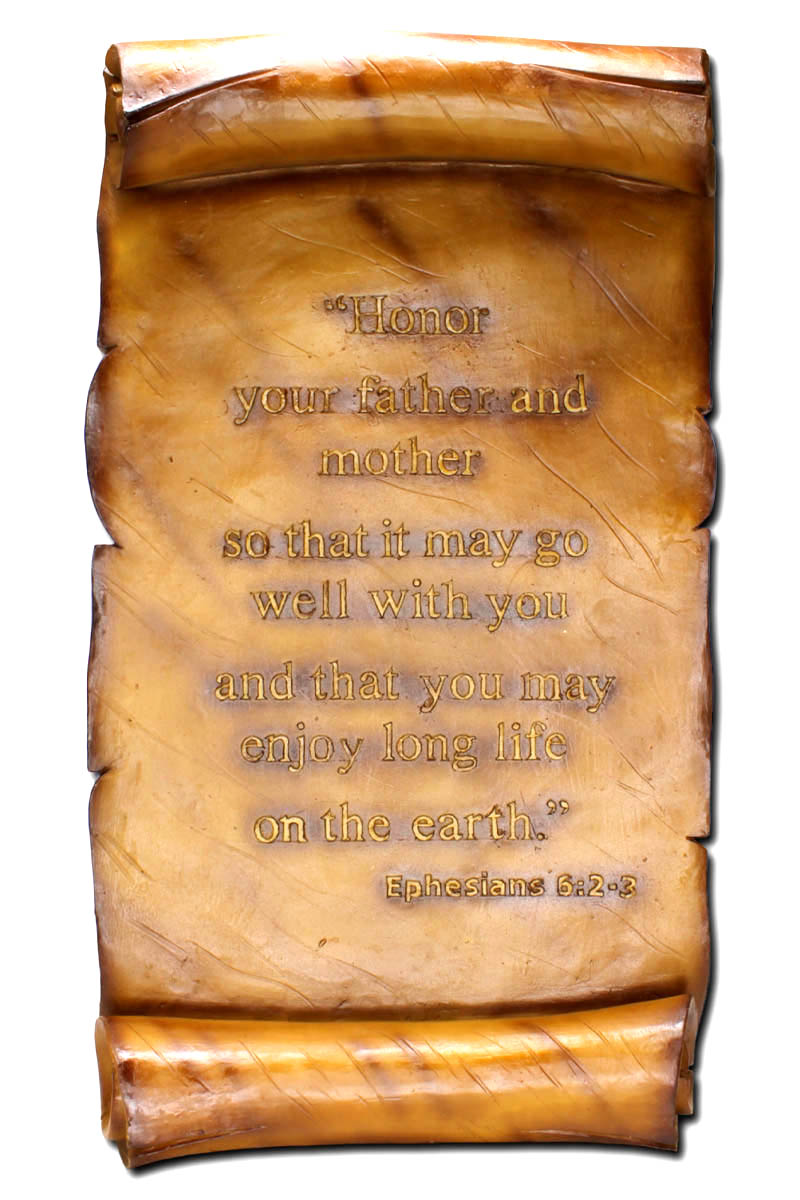 “Honor
your father and
mother
so that it may go
well with you
and that you may
enjoy long life
on the earth.”
Ephesians 6:2-3